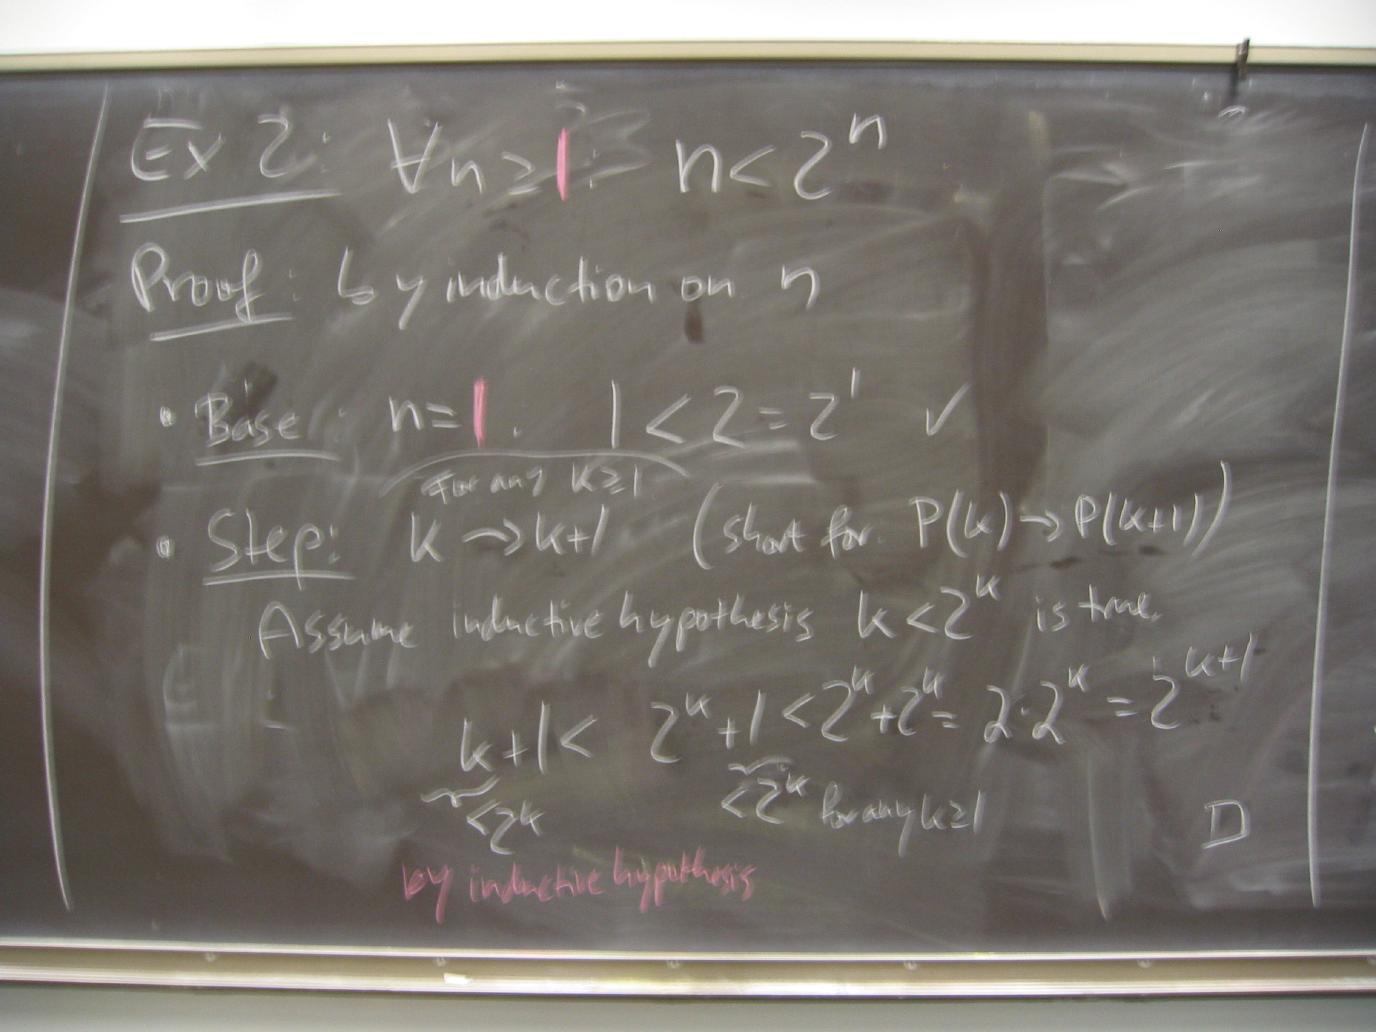 Ex 2: ∀n ≥ 1: n < 2ⁿ
Proof: by induction on n
• Base: n=1. 1 < 2 = 2¹ ✓
For any k≥1
• Step: k → k+1 (short for P(k) → P(k+1))
Assume inductive hypothesis k < 2ᵏ is true.
k+1 < 2ᵏ+1 < 2ᵏ+2ᵏ = 2·2ᵏ = 2ᵏ⁺¹
<2ᵏ <2ᵏ for any k≥1 □
by inductive hypothesis